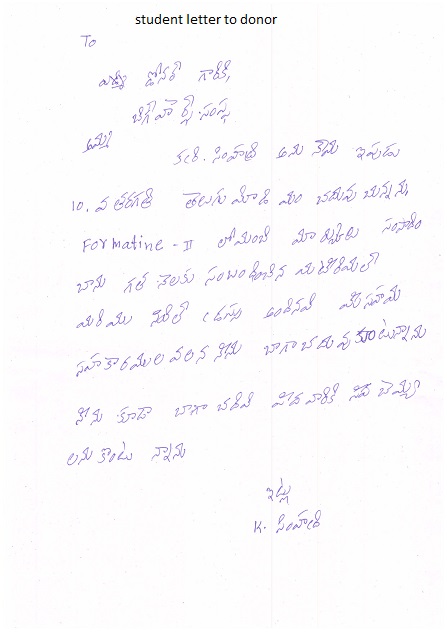 student letter to donor
To
డోనర్ గారికి,
బిగ్ హెల్ప్ సంస్థ
అమ్మ
కె. సింహాద్రి అను నేను ఇపుడు
10. వ తరగతి తెలుగు మీడియం చదువుచున్నను
Formatine - II లో మంచి మార్కులు సంపాదిం
చాను గత నెలకు సంబంధించిన మెటీరియల్
మరియు అందినవి మీ సహాయ
సహకారముల వలన నేను బాగా చదువుకుంటున్నాను
నేను కూడా బాగా చదివి పేదవారికి సేవ చెయ్యా
లనుకొంటు న్నాను
ఇట్లు
K. సింహాద్రి